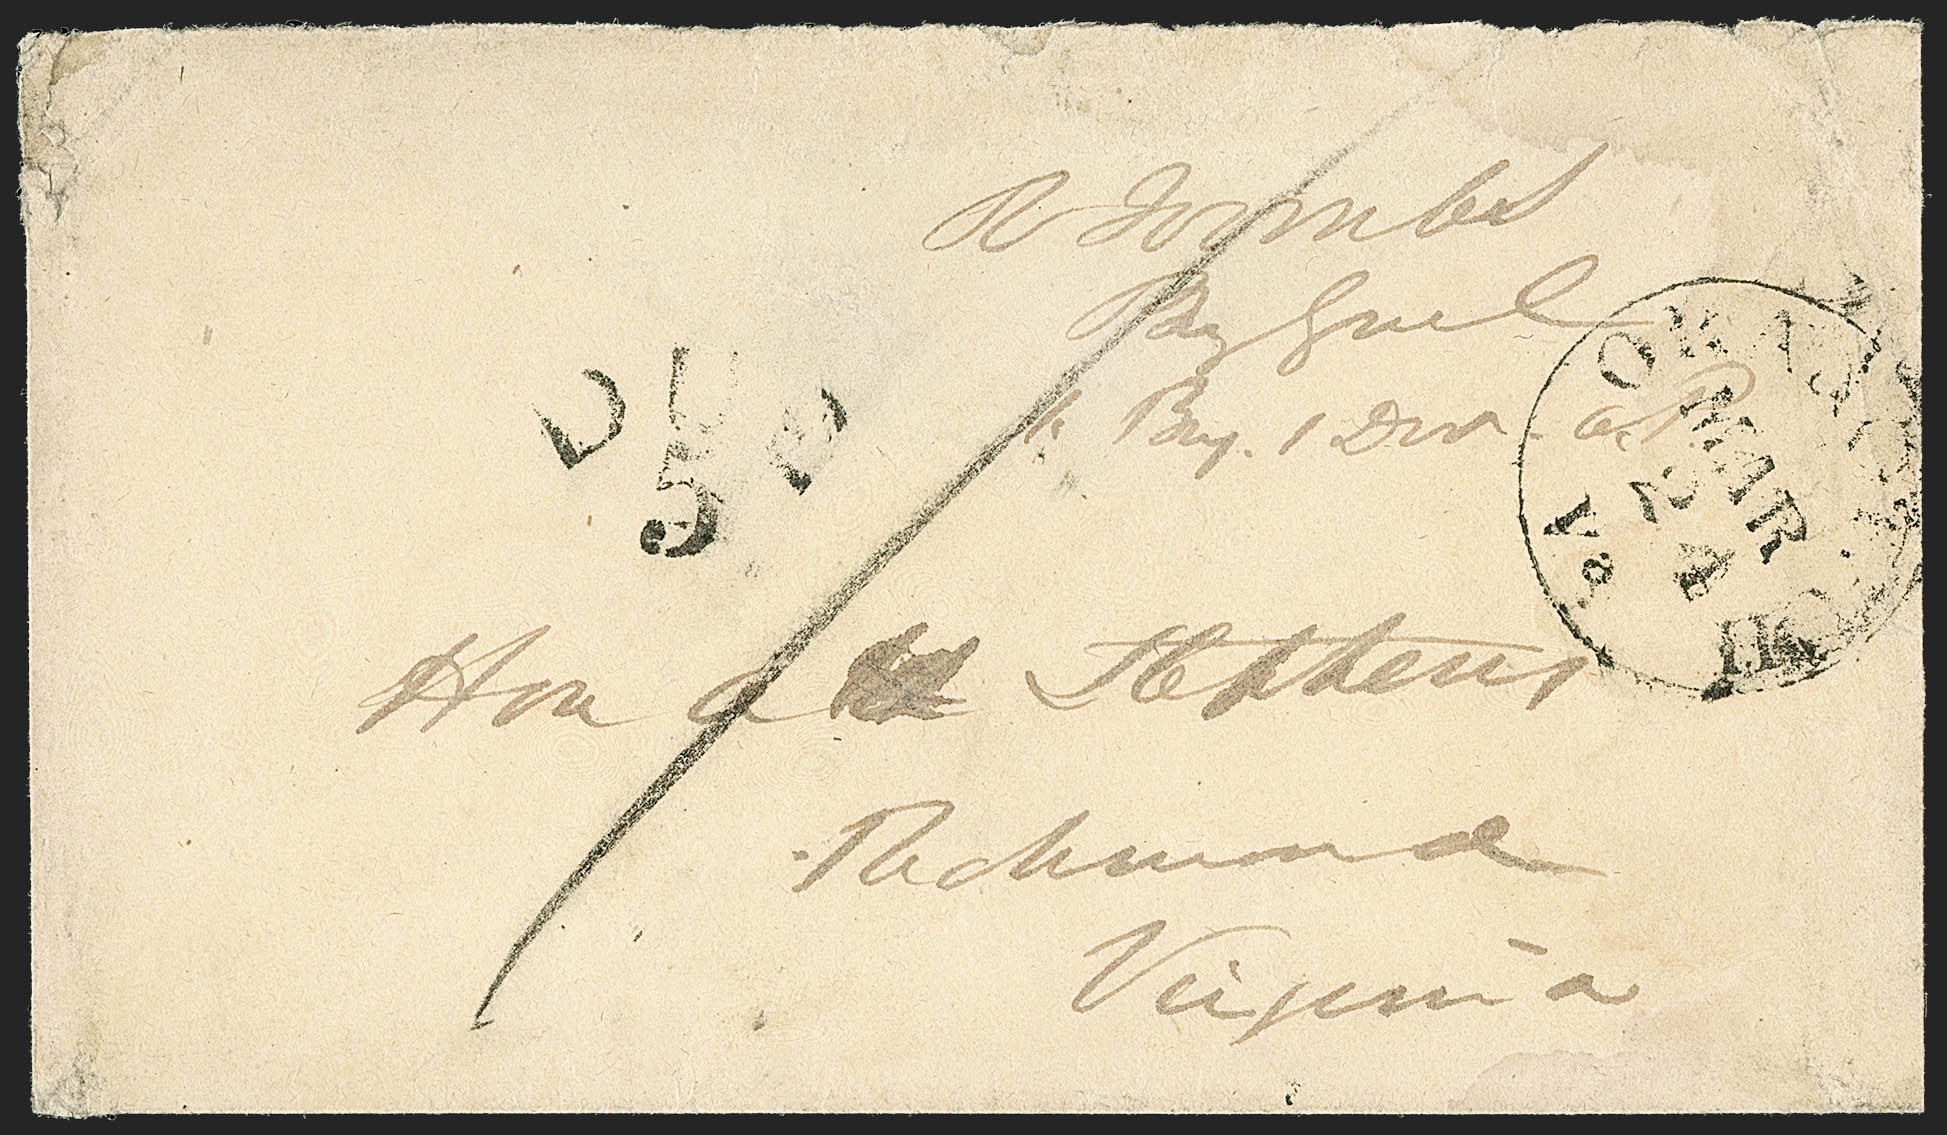 R Toombs
Brig Genl
1. Brig. 1 Divn. A.P.
DUE
5
MAR
24
Va.
Hon A H Stephens
Richmond
Virginia